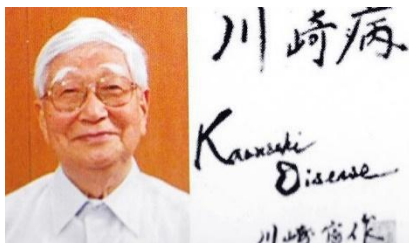 川崎病
Kawasaki
Disease
川崎富作